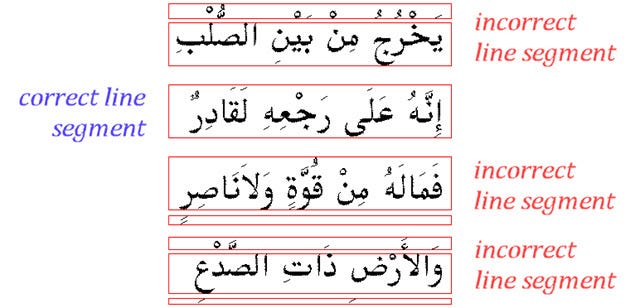 يَخْرُجُ مِنْ بَيْنِ الصُّلْبِ
incorrect
line segment
correct line
segment
إِنَّهُ عَلَى رَجْعِهِ لَقَادِرٌ
فَمَالَهُ مِنْ قُوَّةٍ وَلاَنَاصِرٍ
incorrect
line segment
وَالأَرْضِ ذَاتِ الصَّدْعِ
incorrect
line segment